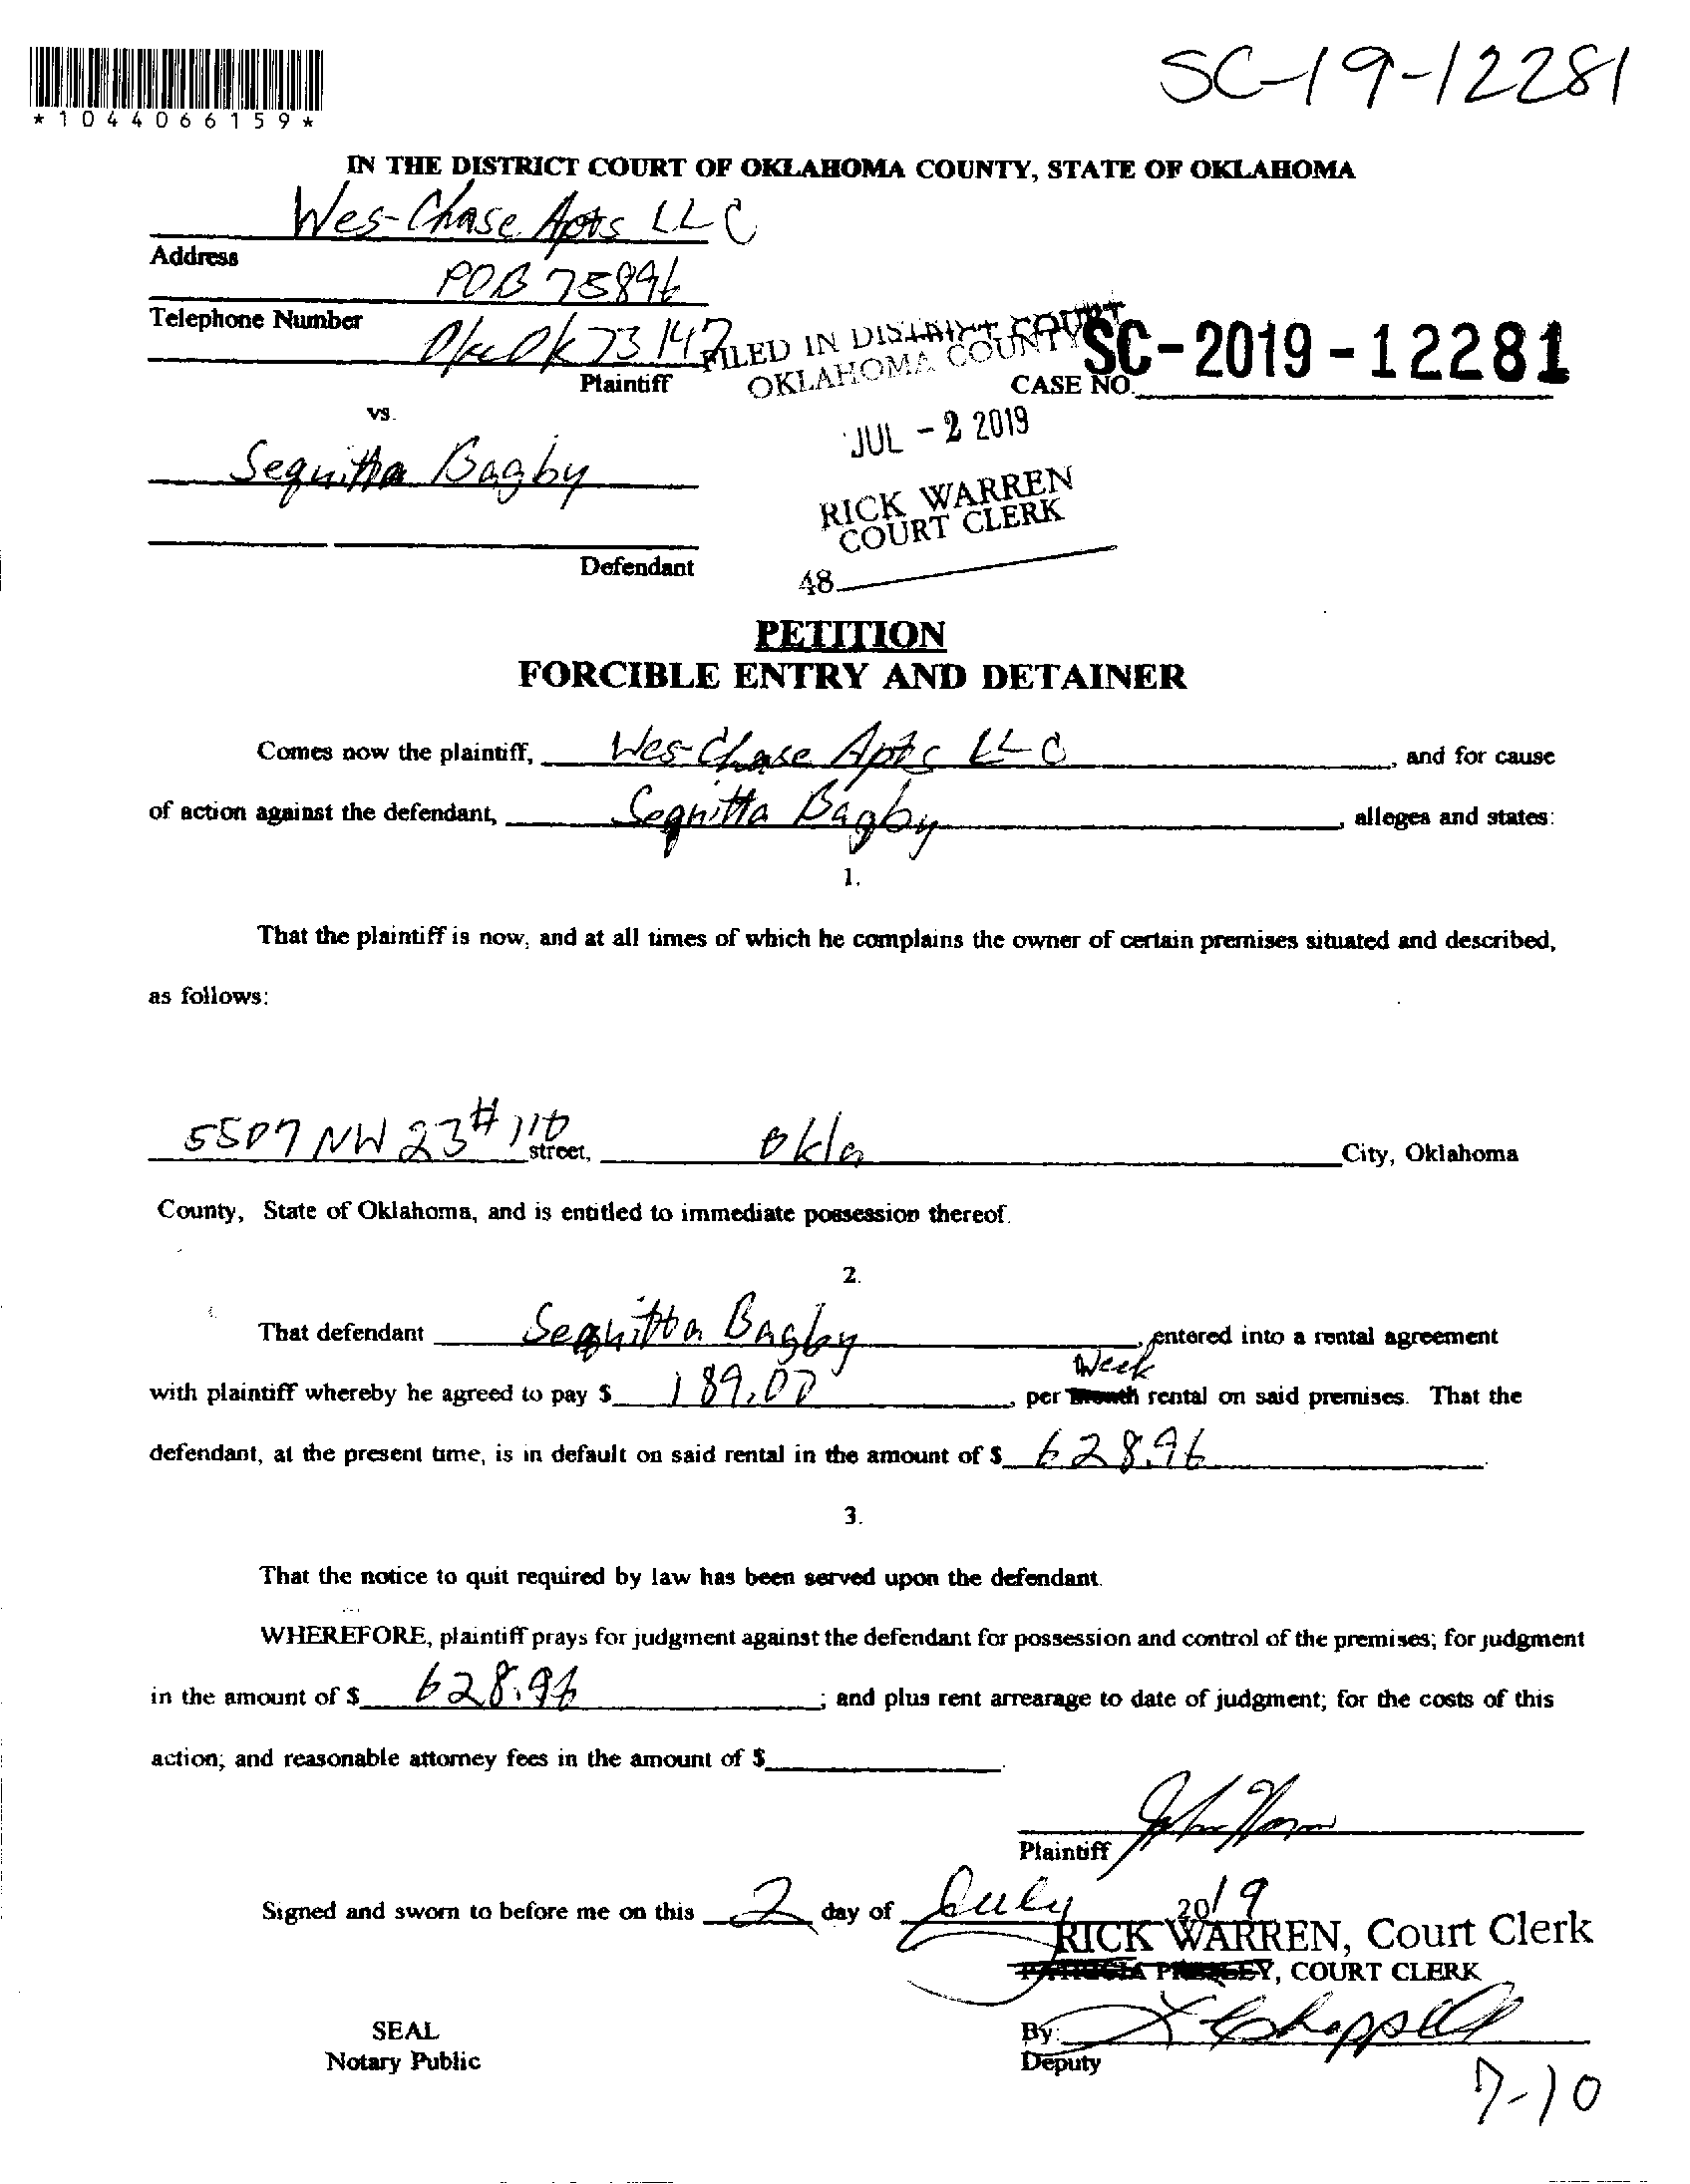 SC-19-12281
*1044066159*
IN THE DISTRICT COURT OF OKLAHOMA COUNTY, STATE OF OKLAHOMA
Wes-Chase Apts LLC
Address
POB 75896
Telephone Number
Okc Ok 73147
Plaintiff
FILED IN DISTRICT COURT
OKLAHOMA COUNTY
CASE NO. SC-2019-12281
vs.
JUL - 2 2019
Sequitta Bagby
RICK WARREN
COURT CLERK
Defendant
48
PETITION
FORCIBLE ENTRY AND DETAINER
Comes now the plaintiff, Wes-Chase Apts LLC, and for cause
of action against the defendant, Sequitta Bagby, alleges and states:
1.
That the plaintiff is now, and at all times of which he complains the owner of certain premises situated and described,
as follows:
5507 NW 23 # 110 street, Okla City, Oklahoma
County, State of Oklahoma, and is entitled to immediate possession thereof.
2.
That defendant Sequitta Bagby, entered into a rental agreement
Week
with plaintiff whereby he agreed to pay $ 189.00, per month rental on said premises. That the
defendant, at the present time, is in default on said rental in the amount of $ 628.96.
3.
That the notice to quit required by law has been served upon the defendant.
WHEREFORE, plaintiff prays for judgment against the defendant for possession and control of the premises; for judgment
in the amount of $ 628.96; and plus rent arrearage to date of judgment; for the costs of this
action; and reasonable attorney fees in the amount of $
Plaintiff
Signed and sworn to before me on this 2 day of July 2019
RICK WARREN, Court Clerk
PATRICIA PRESLEY, COURT CLERK
SEAL
By:
Notary Public
Deputy
7-10